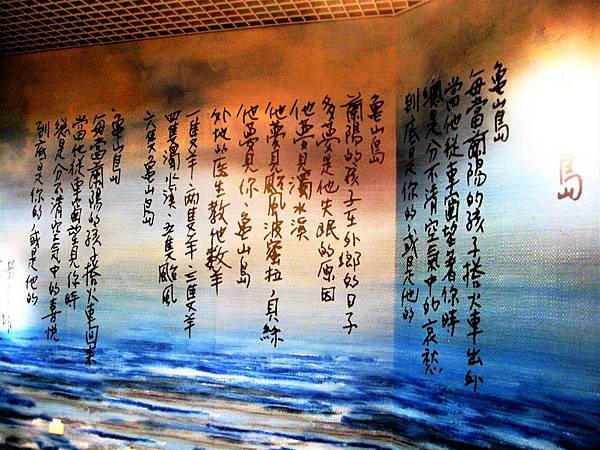 島
龜山島
每當蘭陽的孩子搭火車出外
當他從車窗望著你時
總是分不清空氣中的哀愁
到底是你的,或是他的
龜山島
蘭陽的孩子在外鄉的日子
多夢是他失眠的原因
他夢見濁水溪
他夢見颱風波蜜拉,貝絲
他夢見你,龜山島
外地的医生教他數羊
一隻羊,兩隻羊,三隻羊
四隻濁水溪,五隻颱風
六隻龜山島
龜山島
每當蘭陽的孩子搭火車回來
當他從車窗望見你時
總是分不清空氣中的喜悅
到底是你的,或是他的